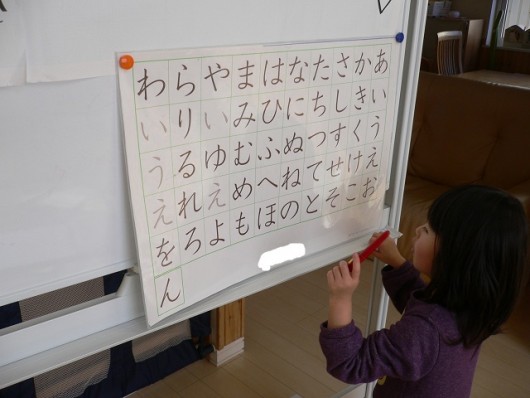 あいうえお
かきくけこ
さしすせそ
たちつてと
なにぬねの
はひふへほ
まみむめも
やいゆえよ
らりるれろ
わいうえを
ん